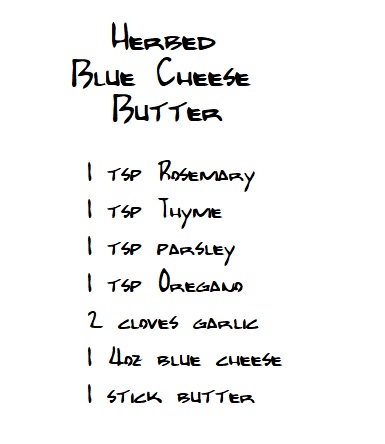 Herbed
Blue Cheese
Butter
1 tsp Rosemary
1 tsp Thyme
1 tsp parsley
1 tsp Oregano
2 cloves garlic
1 4oz blue cheese
1 stick butter